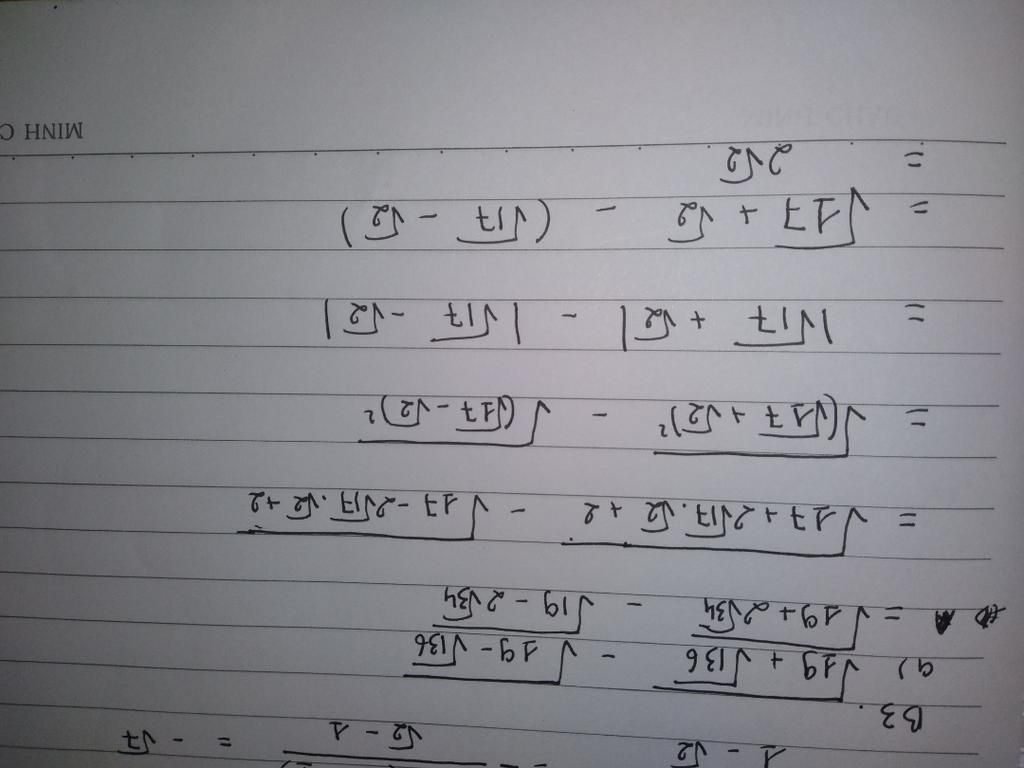 1 - √2 √2 - 1 = - √7
B3.
a) √(19 + √136) - √(19 - √136)
= √(19 + 2√34) - √(19 - 2√34)
= √(17 + 2√17 . √2 + 2) - √(17 - 2√17 . √2 + 2)
= √((√17 + √2)²) - √((√17 - √2)²)
= |√17 + √2| - |√17 - √2|
= √17 + √2 - (√17 - √2)
= 2√2
MINH C